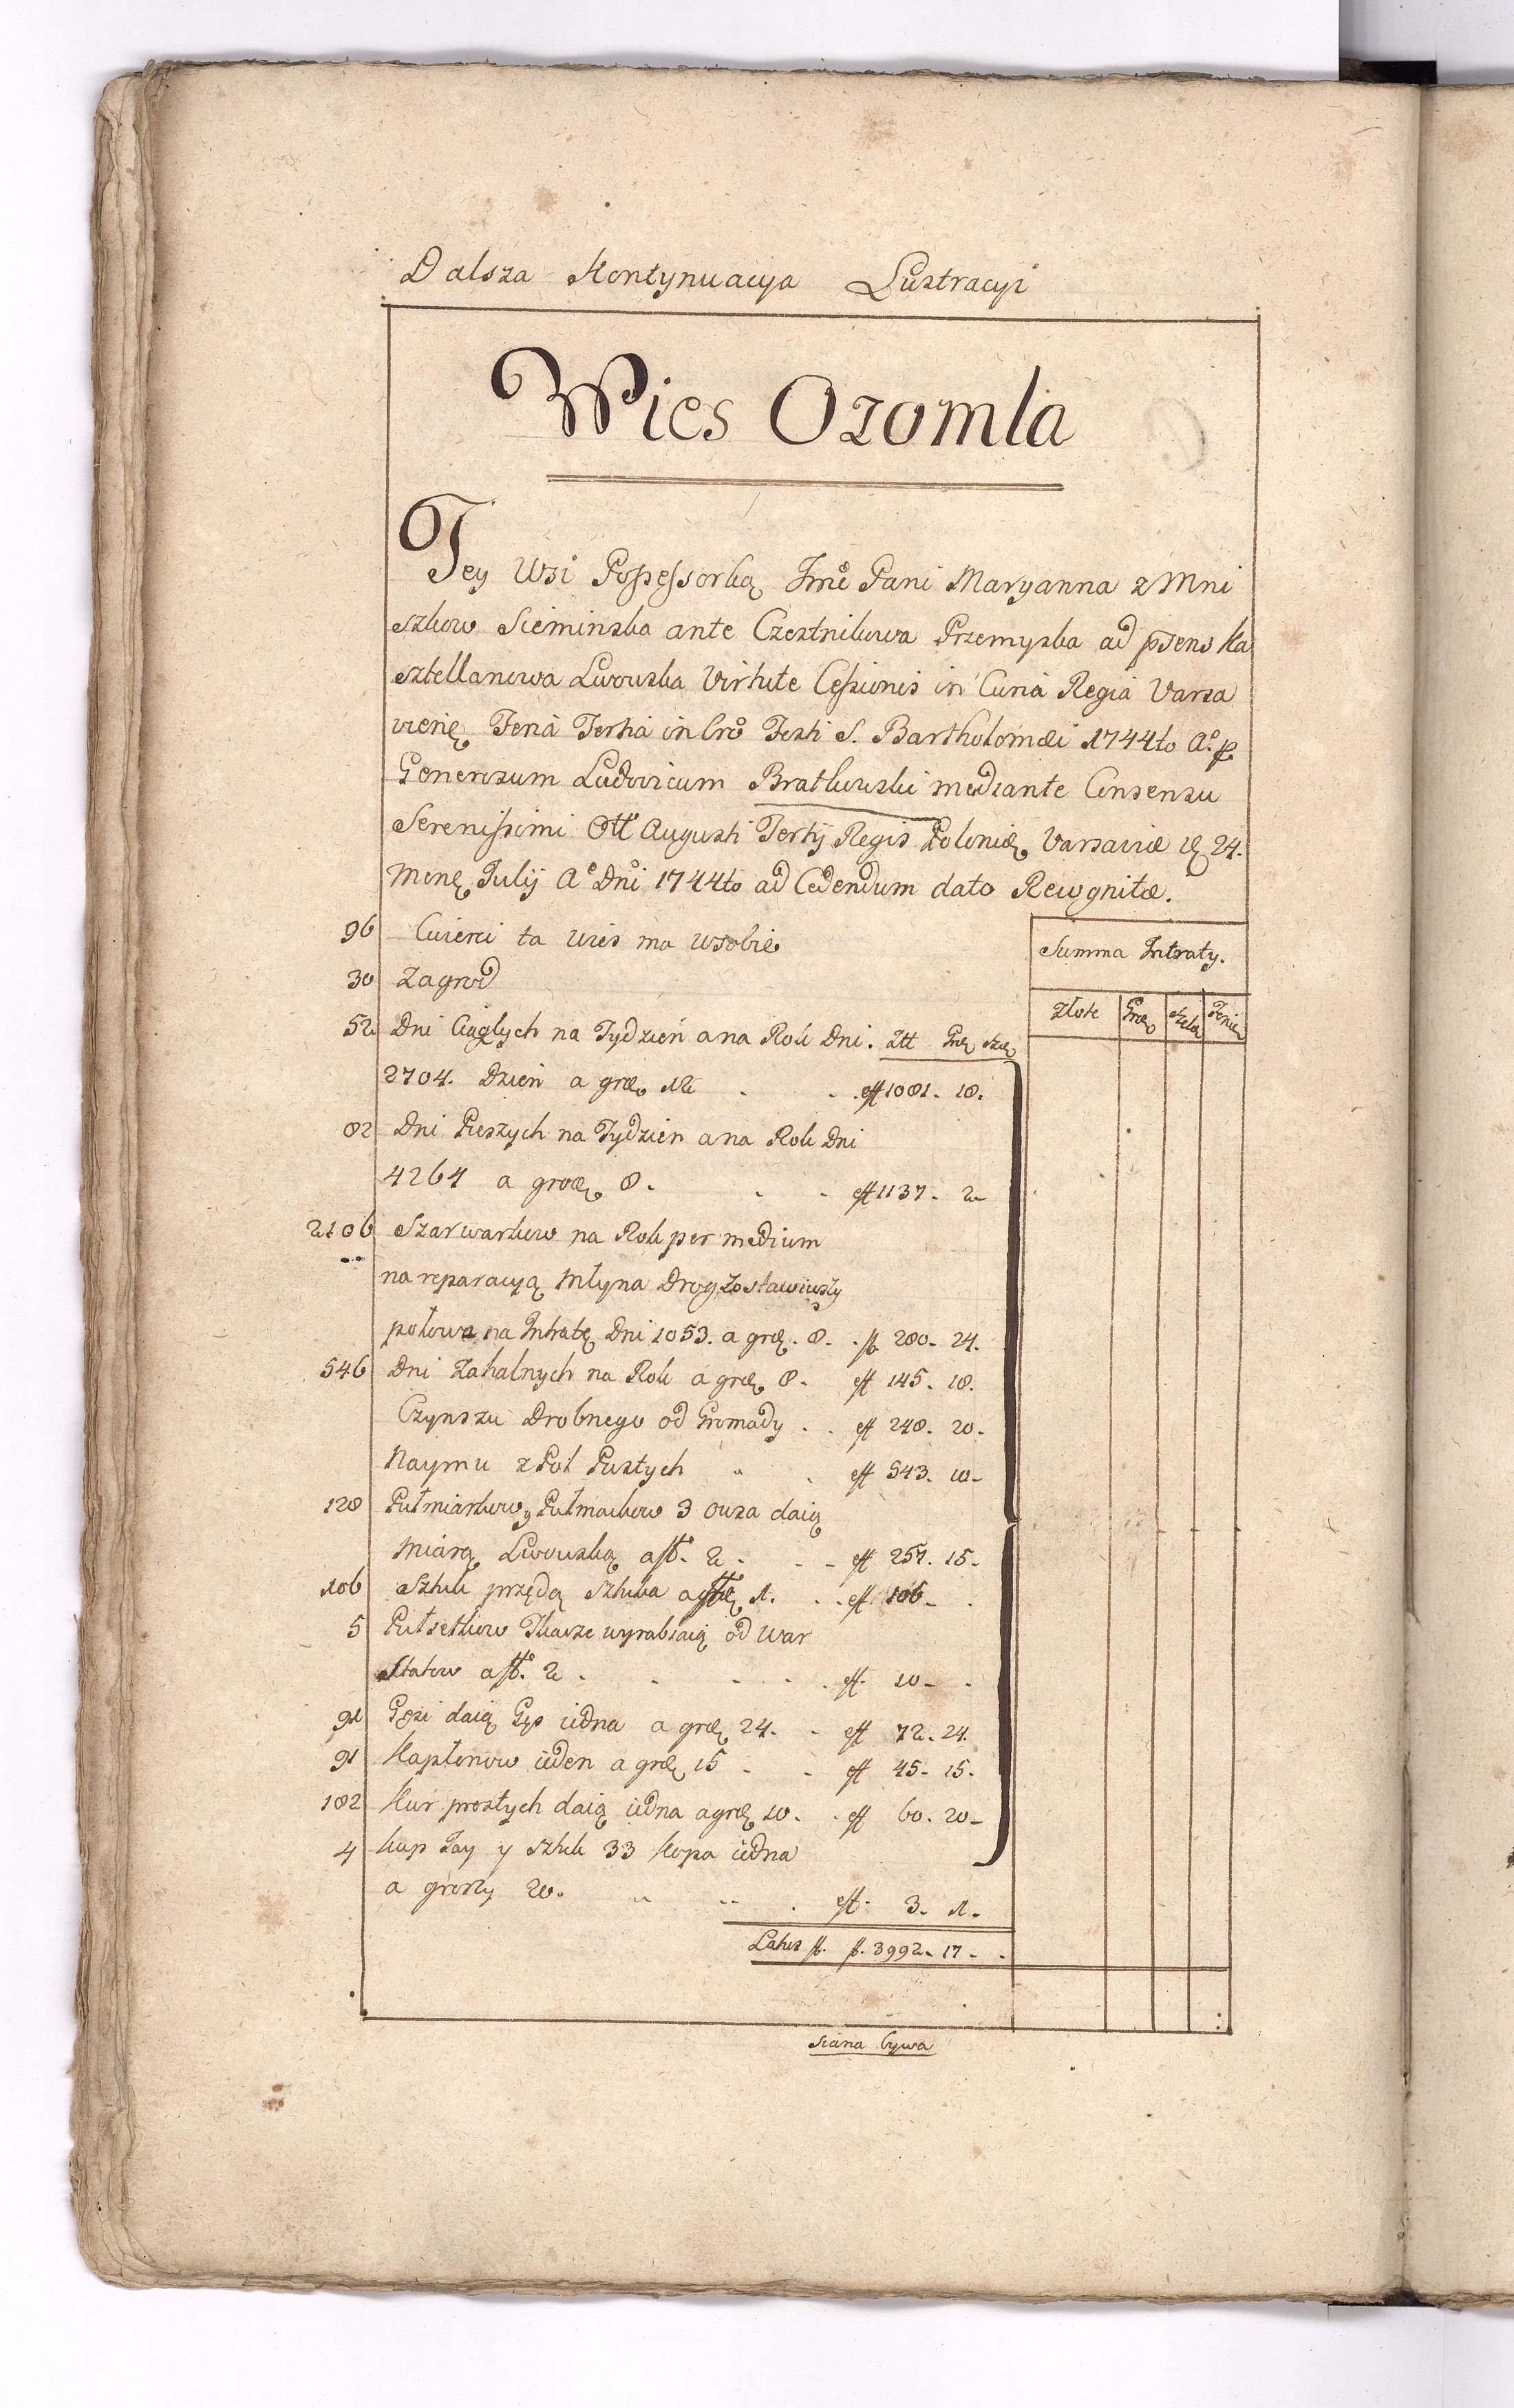 Dalsza Kontynuacya Lustracyi
Wies Ozomla
Tey Wsi Possessorką Jmć Pani Maryanna z Mni
szkow Sieminska ante Czestnikowa Przemyska ad psens Ka
sztellanowa Lwowska Virtute Cessionis in Curiâ Regiâ Varsa
vien: Feriâ Tertiâ in Cro Festi S. Bartholomæi 1744to Aº p
Generosum Ludovicum Bratkowski mediante Consensu
Serenissimi Augusti Tertij Regis Poloniæ Varsaviæ 24.
Mens: Julij Aº Dni 1744to ad Cedendum dato Recognitæ.
96 Cwierci ta Wies ma wsobie
Summa Intraty.
30 Zagrod
Złote Gro: Szela: Fenie:
52 Dni Ciąglych na Tydzień a na Rok Dni. Ztt Gro: Sze:
2704. Dzień a gro: 12 . . eff 1081. 18.
82 Dni Pieszych na Tydzien a na Rok Dni
4264 a gro: 8. . . eff 1137. 2-
2106 Szarwarkow na Rok per medium
na reparacyą Młyna Drog zostawiwszy
połowa na Intratę Dni 1053. a gro: 8. . ff. 280. 24.
546 Dni Zahalnych na Rok a gro: 8. eff 145. 18.
Czynszu Drobnego od Gromady . . eff 248. 20.
Naymu z Pol Pustych . eff 543. 10-
128 Pułmiarkow y Pułmackow 3 Owsa daią
Miarą Lwowską a ff. 2. . . eff 257. 15-
106 Sztuk przędą Sztuka a 1. . . eff 106- .
5 Pułsetkow Tkacze wyrabiaią od War
sztatow a ff. 2 . . . . . eff. 10- .
91 Gęsi daią Gęs iedna a gro: 24. . eff 72. 24.
91 Kapłonow ieden a gro: 15 . . eff 45. 15.
182 Kur prostych daią iedna a gro: 10. . eff 60. 20-
4 kup Jay y sztuk 33 Kopa iedna
a groszy 20. . eff. 3. 1.
Latus ff. ff. 3992. 17 - .
siana bywa